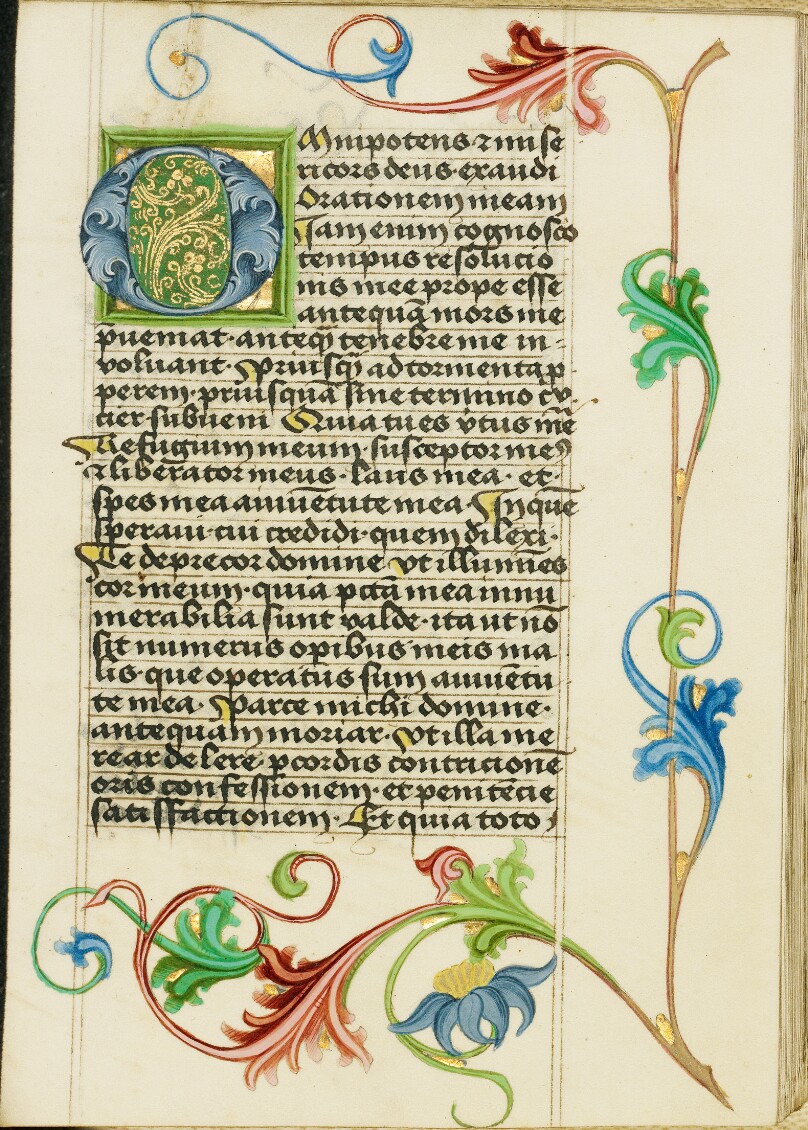 Omnipotens ⁊ mise
ricors deus· exaudi
Orationem meam
Iam enim cognosco
tempus resolucio
nis mee prope esse
antequā mors me
p̄ueniat· anteq̄ tenebre me in-
voluant· Priusq̄ ad tormenta p
perem· priusquā sine termino cru
cier· subueni Quia tu es v̓tus mē
Refugium meum· susceptor meꝰ
⁊ liberator meus· laus mea· et
spes mea a iuuētute mea· In quē
speraui· cui credidi· quem dilexi·
Te deprecor domine vt illumīes
cor meum· quia pctā mea innu
merabilia sunt valde· ita ut nō
sit numerus opibus meis ma
lis· que operatus sum a iuuētu
te mea· Parce michi domine·
antequam moriar· vt illa me
rear delere· p cordis contricionē
oris confessionem· et penitēcie
satisffactionem· Et quia toto